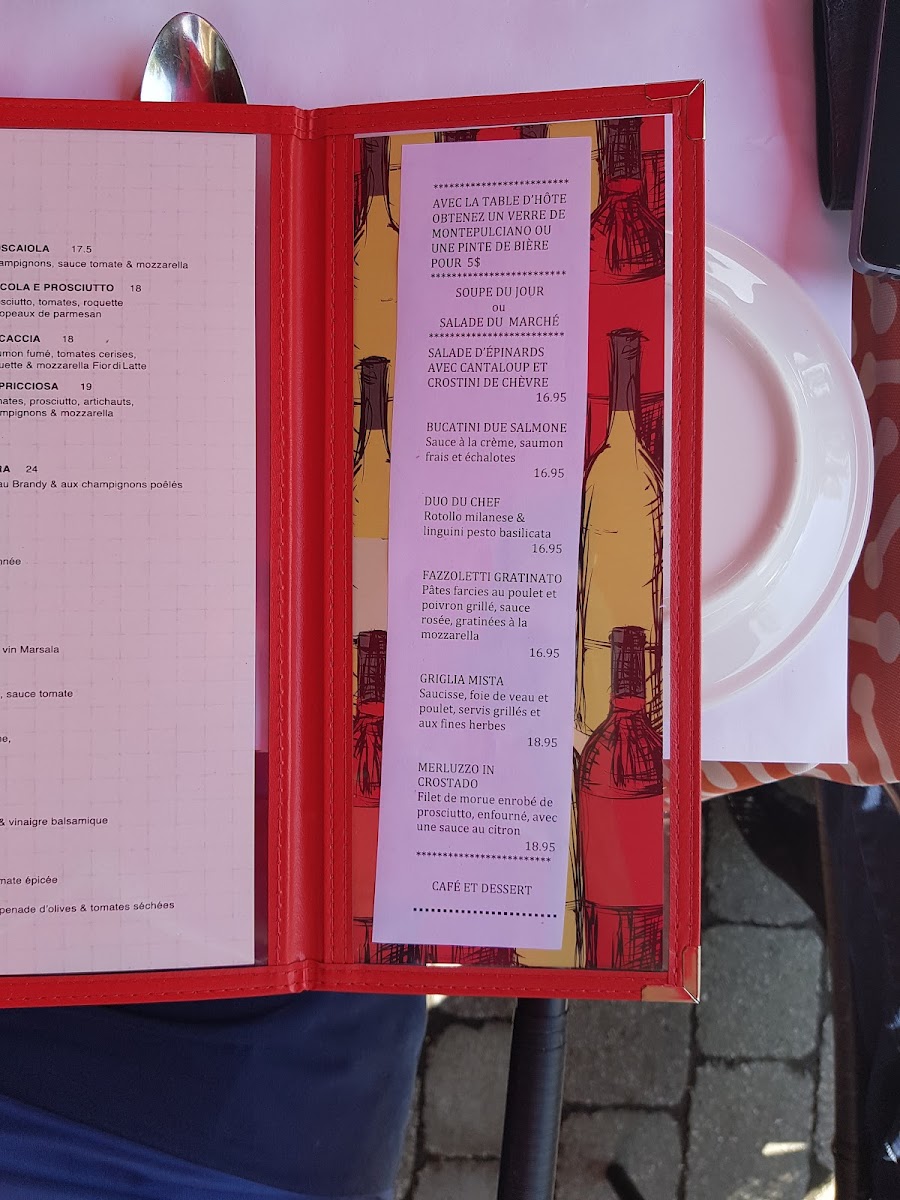 17.5
sauce tomate & mozzarella
PROSCIUTTO 18
tomates, roquette
de parmesan
18
fumé, tomates cerises,
& mozzarella Fior di Latte
19
prosciutto, artichauts,
& mozzarella
24
au Brandy & aux champignons poêlés
vin Marsala
, sauce tomate
& vinaigre balsamique
épicée
d'olives & tomates séchées
**************************
AVEC LA TABLE D'HÔTE
OBTENEZ UN VERRE DE
MONTEPULCIANO OU
UNE PINTE DE BIÈRE
POUR 5$
**************************
SOUPE DU JOUR
ou
SALADE DU MARCHÉ
**************************
SALADE D'ÉPINARDS
AVEC CANTALOUP ET
CROSTINI DE CHÈVRE
16.95
BUCATINI DUE SALMONE
Sauce à la crème, saumon
frais et échalotes
16.95
DUO DU CHEF
Rotollo milanese &
linguini pesto basilicata
16.95
FAZZOLETTI GRATINATO
Pâtes farcies au poulet et
poivron grillé, sauce
rosée, gratinées à la
mozzarella
16.95
GRIGLIA MISTA
Saucisse, foie de veau et
poulet, servis grillés et
aux fines herbes
18.95
MERLUZZO IN
CROSTADO
Filet de morue enrobé de
prosciutto, enfourné, avec
une sauce au citron
18.95
**************************
CAFÉ ET DESSERT